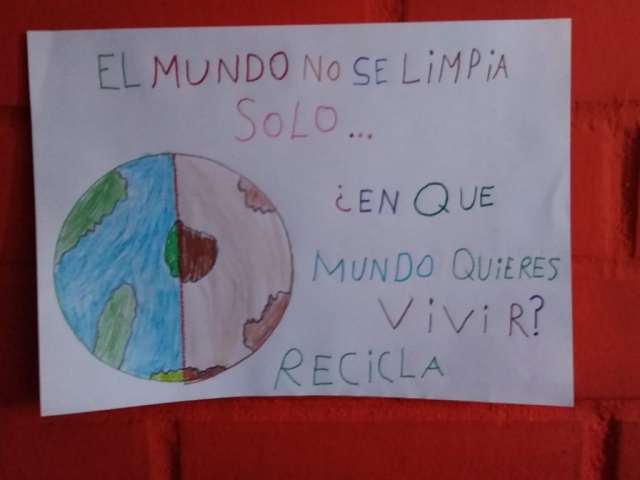 EL MUNDO NO SE LiMPiA
SOLO...
¿EN QUE
MUNDO QUiERES
ViViR?
RECiCLA